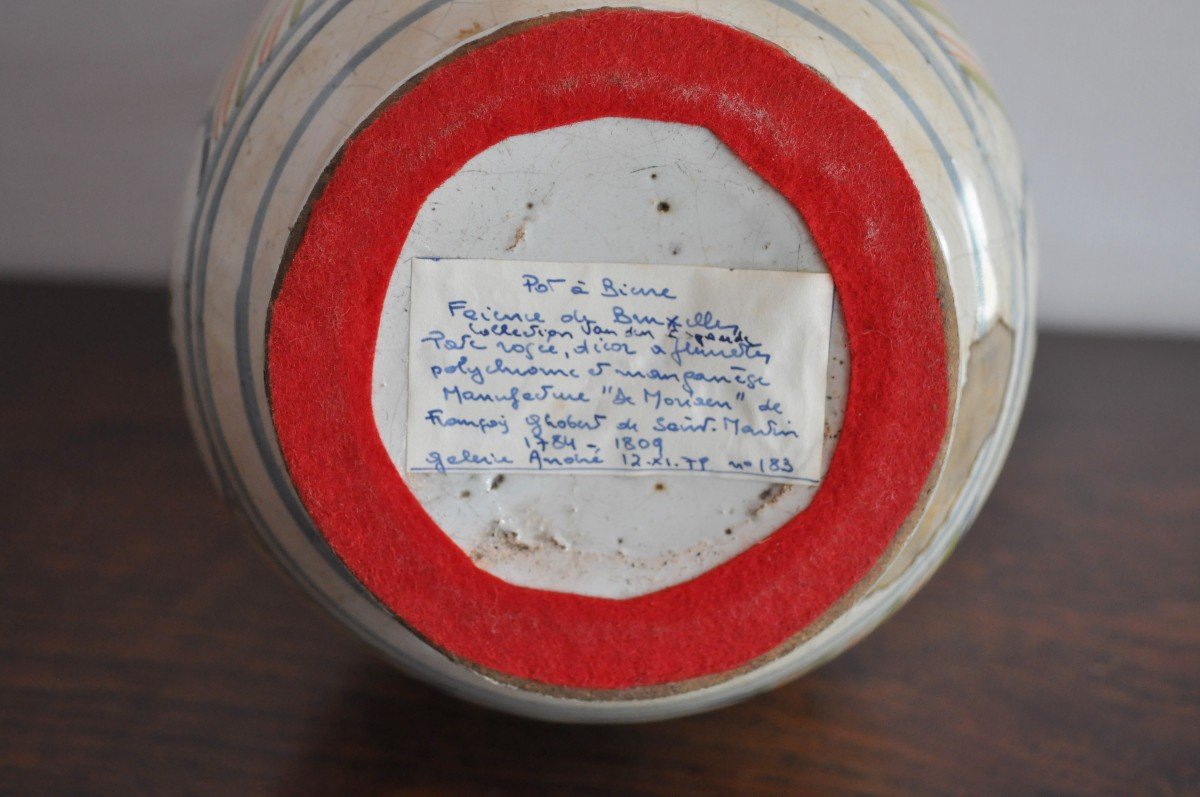 Pot à Biere
Faience de Bruxelles
Collection Van den
Pate rosée, décor a fleurettes
polychrome et manganèse
Manufacture "De Moriaen" de
François Ghobert de Saint-Martin
1784 - 1809
Galerie André 12.XI. no 183